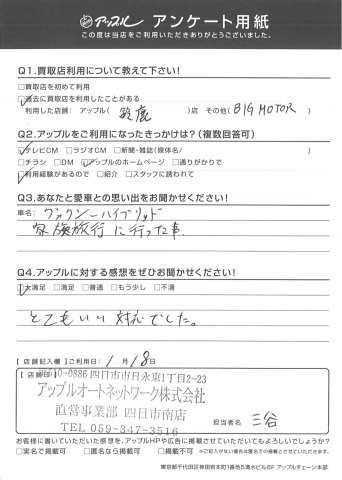 アップル アンケート用紙
この度は当店をご利用いただきありがとうございました。
Q1.買取店利用について教えて下さい!
□買取店を初めて利用
☑過去に買取店を利用したことがある
利用した店舗: アップル( 鈴鹿 )店 その他( BIG MOTOR )
Q2.アップルをご利用になったきっかけは?(複数回答可)
☑テレビCM □ラジオCM □新聞・雑誌(媒体名/ )
□チラシ □DM ☑アップルのホームページ □通りがかりで
☑利用経験があるので □紹介 □スタッフに誘われて
Q3.あなたと愛車との思い出をお聞かせください!
車名: ヴォクシーハイブリッド
家族旅行に行った事.
Q4.アップルに対する感想をぜひお聞かせください!
☑大満足 □満足 □普通 □もう少し □不満
とてもいい対応でした。
【 店舗記入欄 】ご利用日: 1月18日
【 店舗印 】
〒510-0886 四日市市日永東1丁目2-23
アップルオートネットワーク株式会社
直営事業部 四日市南店
TEL 059-347-3516
担当者名 三谷
お客様に書いていただいた感想を、アップルHPや広告に掲載させていただいてもよろしいでしょうか?
□実名で掲載可 □匿名なら掲載可 □掲載不可 ※ご記入がない場合は匿名での掲載とさせていただきます。
東京都千代田区神田岩本町1番地5清水ビル6F アップルチェーン本部